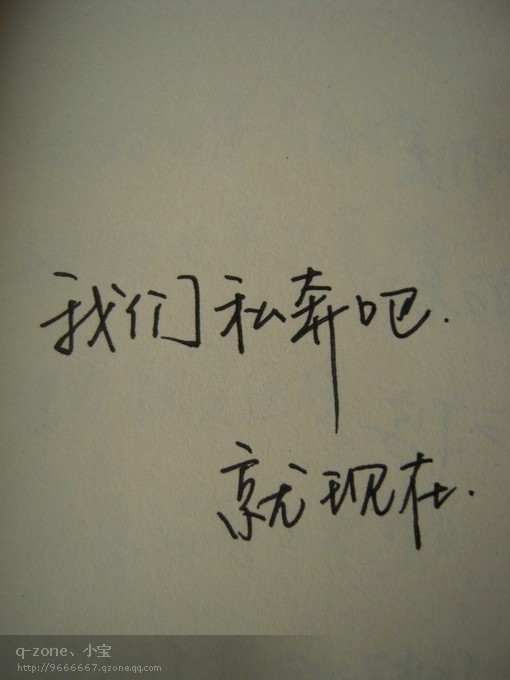 我们私奔吧.
就现在.
q-zone、小宝
http://9666667.qzone.qq.com